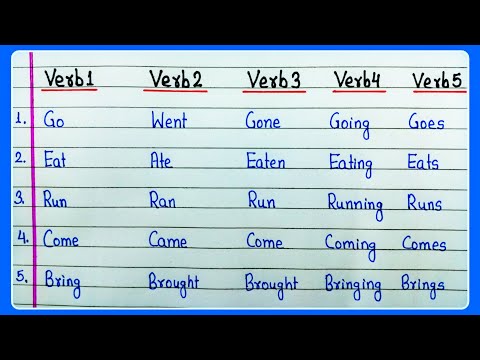 Verb1 Verb2 Verb3 Verb4 Verb5
1. Go Went Gone Going Goes
2. Eat Ate Eaten Eating Eats
3. Run Ran Run Running Runs
4. Come Came Come Coming Comes
5. Bring Brought Brought Bringing Brings